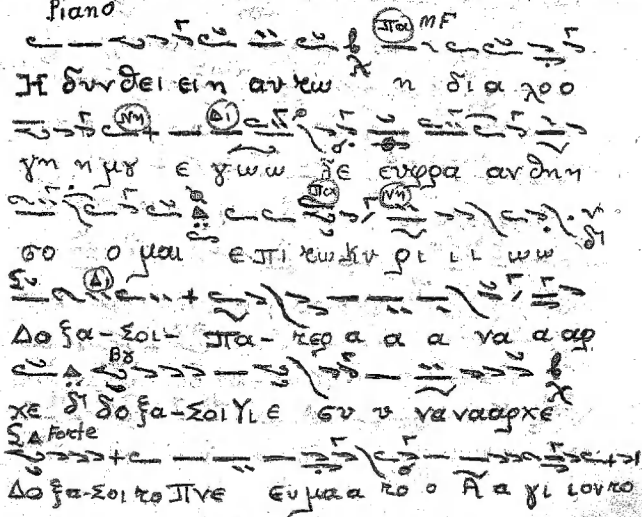 Piano
Πα mF
Η δυνθει ει η αυ τω η δι α λοο
Νη Δι
γη η μȣ ε γωω δε ευφρα αν θηη
Πα Νη
σο ο μαι ε πι τω Κυ ρι ι ι ωω
Δι
Δοξα-Σοι- Πα-τερ α α α να α αρ
Βȣ
χε δοξα-Σοι Υι ε συ υ να νααρχε
Forte
Δοξα-Σοι το Πνε ευ μα α το ο Α α γι ιον το